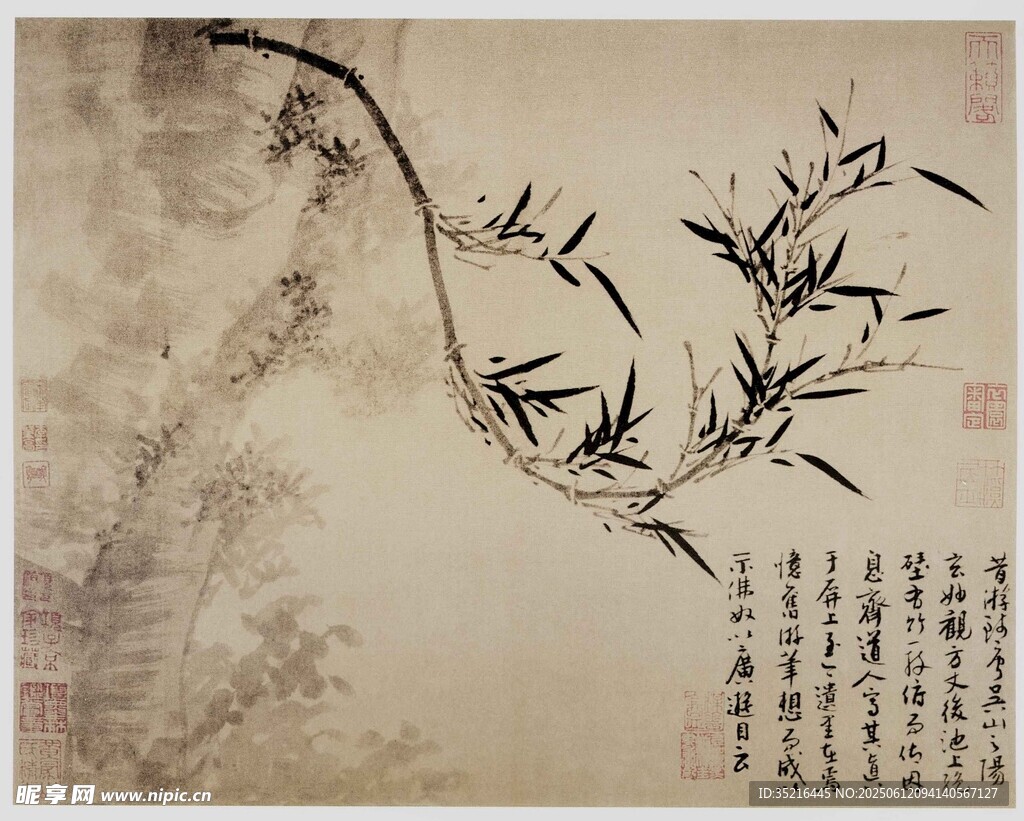 昔游錢唐吳山之陽
玄妙觀方丈後池上絕
壁有竹一枝俯而仰因
息齋道人寫其真
于屏上至今遺墨在焉
憶舊游筆想而成以
示佛奴以廣遊目云
天籟閣
項子京家珍藏
昵享网 www.nipic.cn
ID:35216445 NO:20250612094140567127